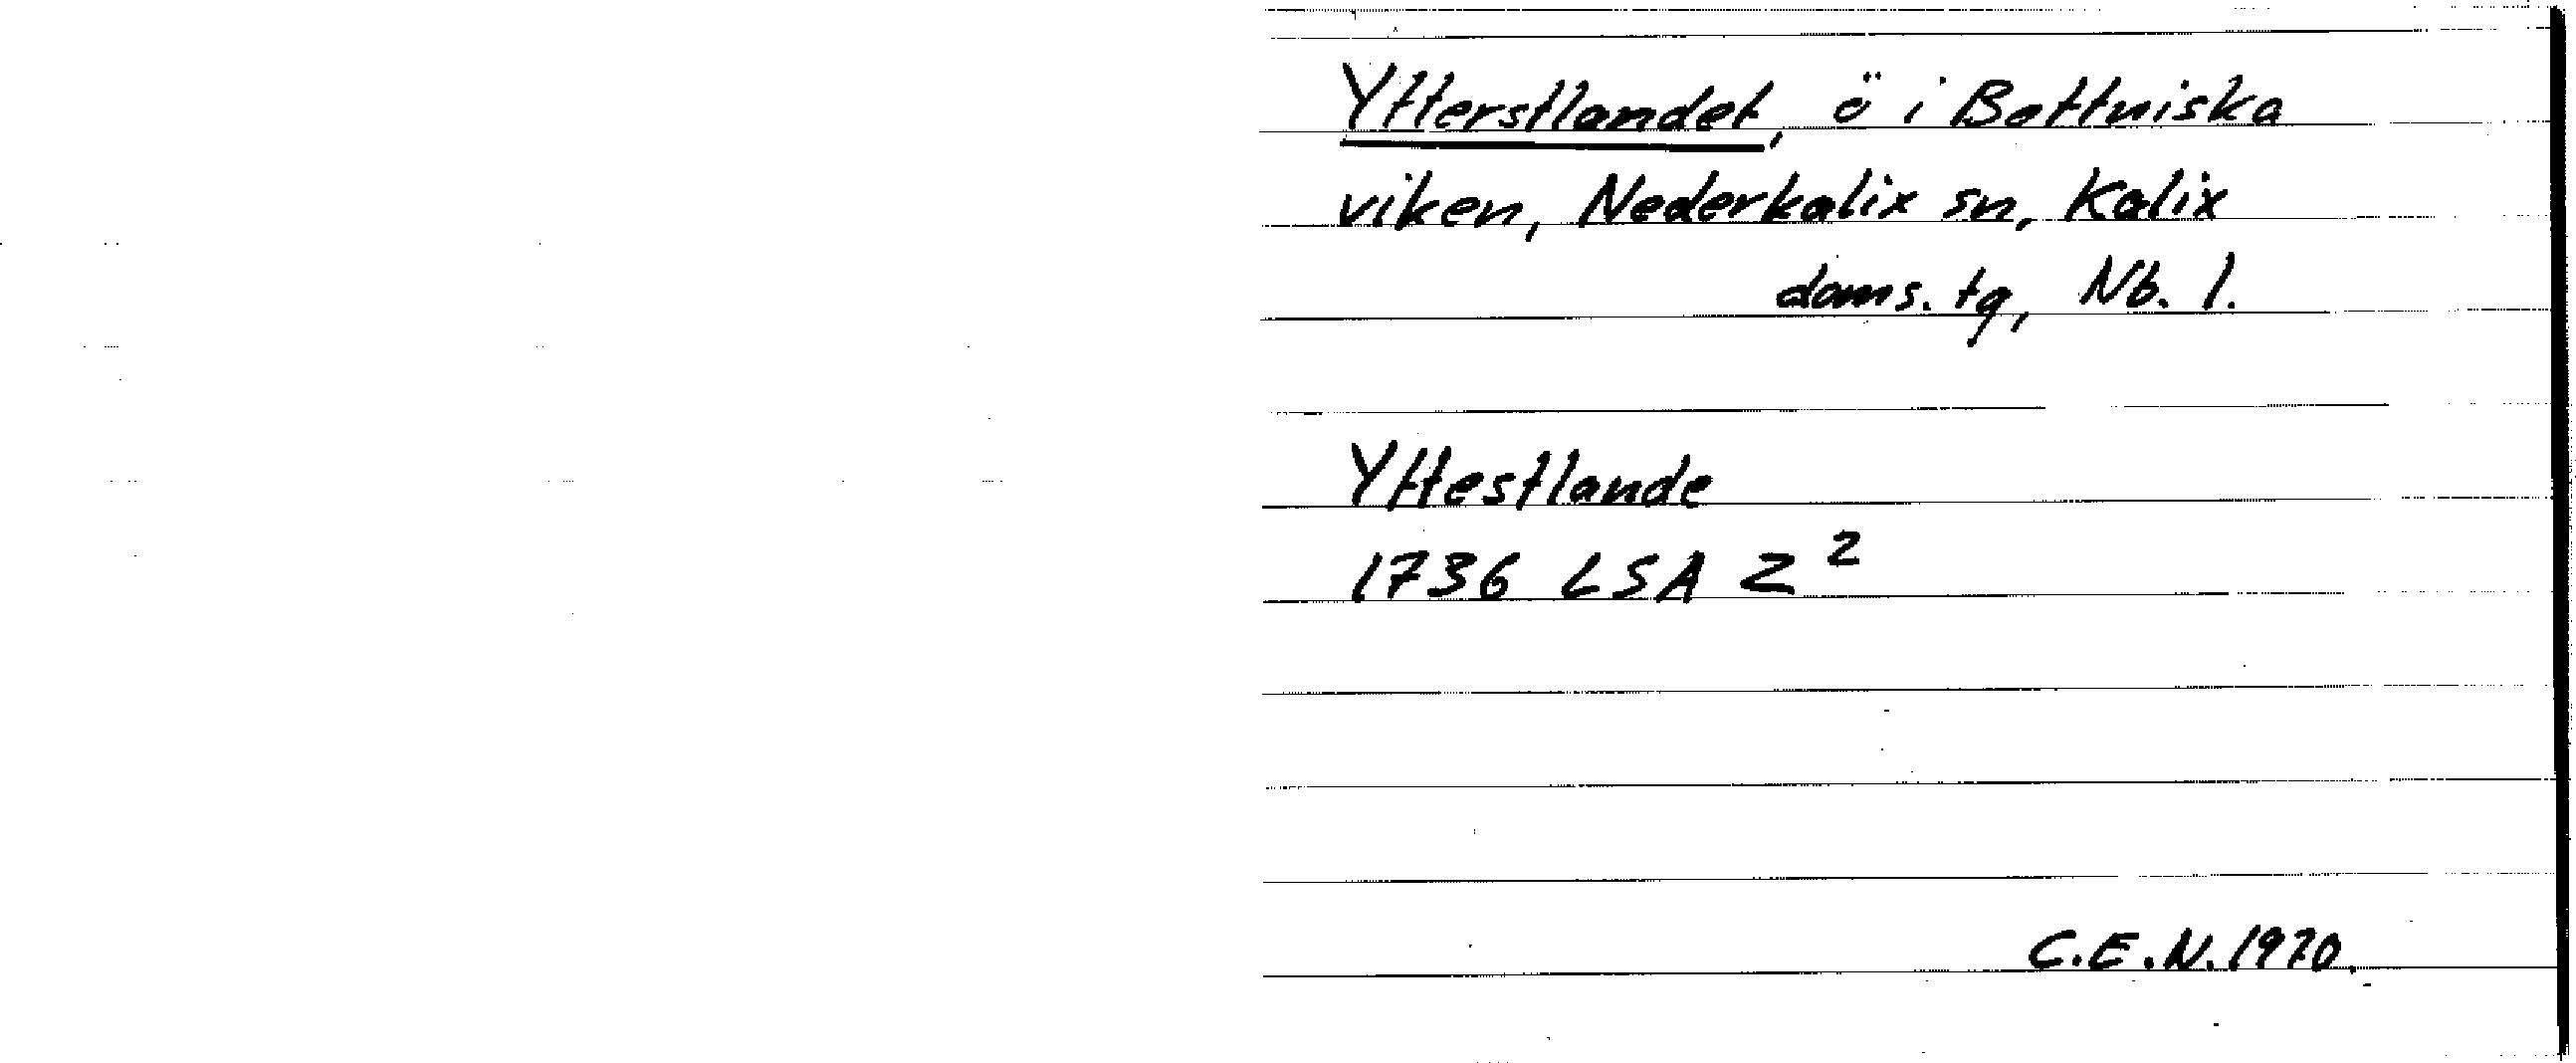 Ytterstlandet, ö i Bottniska
viken, Nederkalix sn, Kalix
doms. tg, Nb. l.
Yttestlande
1736 LSA Z²
C.E.N. 1970.